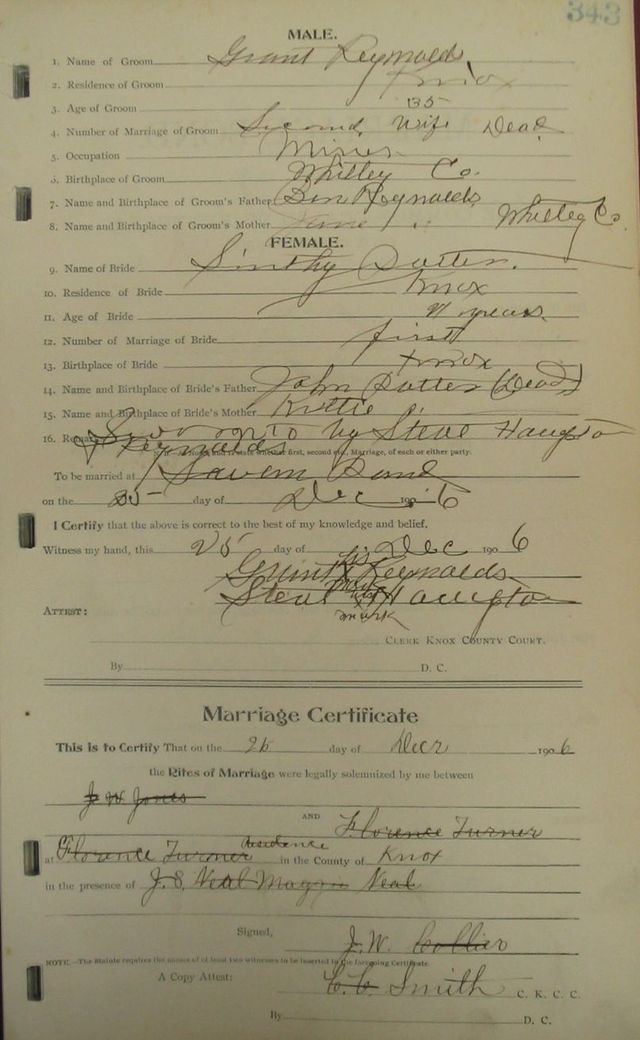 343
MALE.
1. Name of Groom Grant Reynolds
2. Residence of Groom Knox
3. Age of Groom 35
4. Number of Marriage of Groom Second Wife Dead
5. Occupation Miner
6. Birthplace of Groom Whitley Co.
7. Name and Birthplace of Groom's Father Ben Reynolds
8. Name and Birthplace of Groom's Mother Jane " Whitley Co.
FEMALE.
9. Name of Bride Sinthy
10. Residence of Bride Knox
11. Age of Bride 21 years
12. Number of Marriage of Bride first
13. Birthplace of Bride Knox
14. Name and Birthplace of Bride's Father John (Dead)
15. Name and Birthplace of Bride's Mother Kittie "
16. Remarks by Steve Hampton
Reynolds
To be married at
on the 25 day of Dec 1906
I Certify that the above is correct to the best of my knowledge and belief.
Witness my hand, this 25 day of Dec 1906
Grant his x Reynolds
Steve Hampton
mark
ATTEST:
CLERK KNOX COUNTY COURT.
By D. C.
Marriage Certificate
This is to Certify That on the 26 day of Decr 1906
the Rites of Marriage were legally solemnized by me between
J W Jones
AND Florence Turner
at Florence Turner Residence in the County of Knox
in the presence of J. S. Neal Neal
Signed,
J. W. Collier
NOTE.—The Statute requires the names of at least two witnesses to be inserted in the foregoing Certificate.
A Copy Attest: C. C. Smith C. K. C. C.
By D. C.